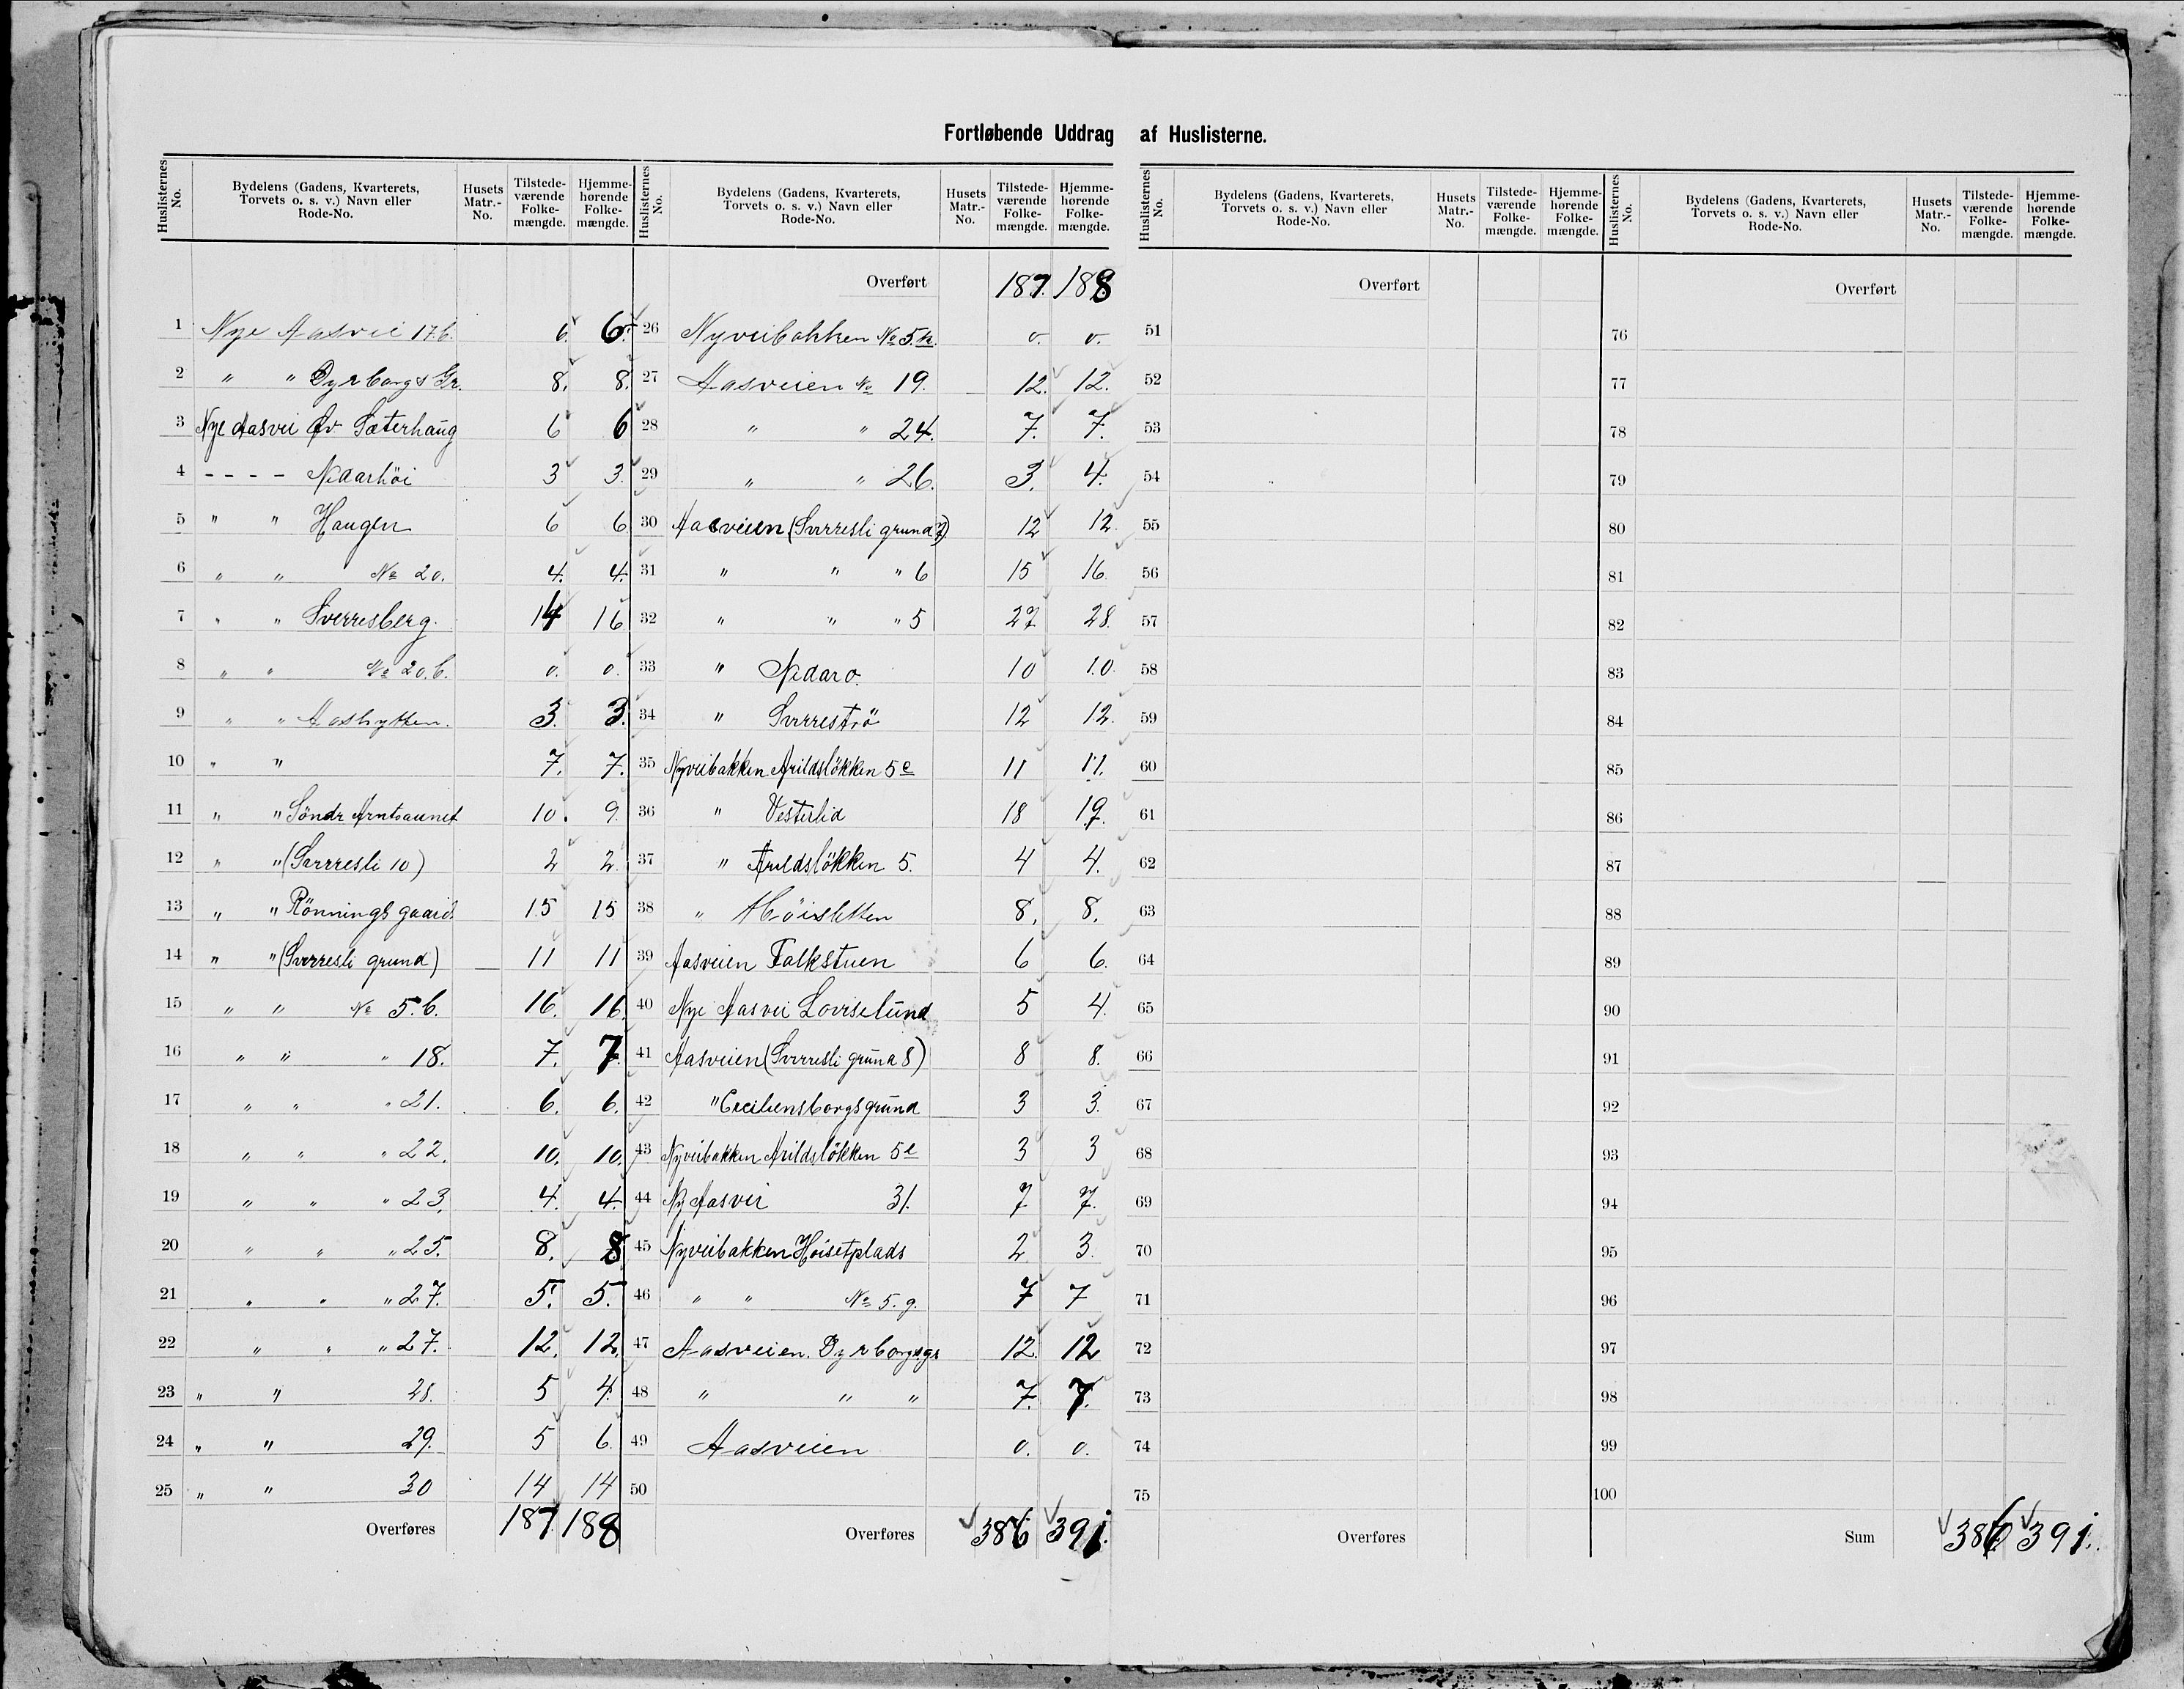 Fortløbende Uddrag af Huslisterne.
Huslisternes No. Bydelens (Gadens, Kvarterets, Torvets o. s. v.) Navn eller Rode-No. Husets Matr.-No. Tilstedeværende Folkemængde. Hjemmehørende Folkemængde.
1 Nye Aasvei 17b. 6. 6.
2 " " Dyrborgs Gr. 8. 8.
3 Nye Aasvei Øv Sæterhaug 6 6
4 - - - - Nidarhöi 3 3.
5 " " Haugen 6 6
6 " " No 20. 4. 4.
7 " " Sverresberg. 14 16
8 " " No 20.b. 0. 0.
9 " " Aashytten. 3. 3.
10 " " 7. 7.
11 " " Söndr Arntsaunet 10. 9.
12 " " (Sverresli 10) 2 2.
13 " " Rönnings gaard. 15 15
14 " " (Sverresli grund) 11 11
15 " " No 5.b. 16. 16.
16 " " " 18. 7. 7.
17 " " " 21. 6. 6.
18 " " " 22. 10. 10.
19 " " " 23. 4. 4.
20 " " " 25. 8. 8
21 " " " 27. 5. 5.
22 " " " 27. 12. 12.
23 " " 28. 5 4.
24 " " 29. 5 6
25 " " 30 14 14
Overføres 187. 188
Huslisternes No. Bydelens (Gadens, Kvarterets, Torvets o. s. v.) Navn eller Rode-No. Husets Matr.-No. Tilstedeværende Folkemængde. Hjemmehørende Folkemængde.
Overført 187. 188
26 Nyveibakken No 5. 0. 0.
27 Aasveien No 19. 12. 12.
28 " " 24. 7. 7.
29 " " 26. 3. 4.
30 Aasveien (Sverresli grund 7) 12 12.
31 " " " 6 15 16.
32 " " " 5 27 28.
33 " Nidaro. 10 10.
34 " Sverreströ 12 12.
35 Nyveibakken Arildsløkken 5e 11 11.
36 " Vesterlid 18 19.
37 " Arildsløkken 5. 4 4.
38 " Höisletten 8. 8.
39 Aasveien Falkstuen 6 6.
40 Nye Aasvei Loviselund 5 4.
41 Aasveien (Sverresli grund 8) 8 8.
42 " Ceciliensborgs grund 3 3.
43 Nyveibakken Arildsløkken 5 3 3
44 Ny Aasvei 31. 7 7.
45 Nyveibakken Höisetplads 2 3.
46 " " No 5. g. 7 7
47 Aasveien. Dyrborgsgr 12. 12
48 " " " 7. 7.
49 Aasveien 0. 0.
50
Overføres 386 391.
Huslisternes No. Bydelens (Gadens, Kvarterets, Torvets o. s. v.) Navn eller Rode-No. Husets Matr.-No. Tilstedeværende Folkemængde. Hjemmehørende Folkemængde.
Overført
51
52
53
54
55
56
57
58
59
60
61
62
63
64
65
66
67
68
69
70
71
72
73
74
75
Overføres
Huslisternes No. Bydelens (Gadens, Kvarterets, Torvets o. s. v.) Navn eller Rode-No. Husets Matr.-No. Tilstedeværende Folkemængde. Hjemmehørende Folkemængde.
Overført
76
77
78
79
80
81
82
83
84
85
86
87
88
89
90
91
92
93
94
95
96
97
98
99
100
Sum 386 391.